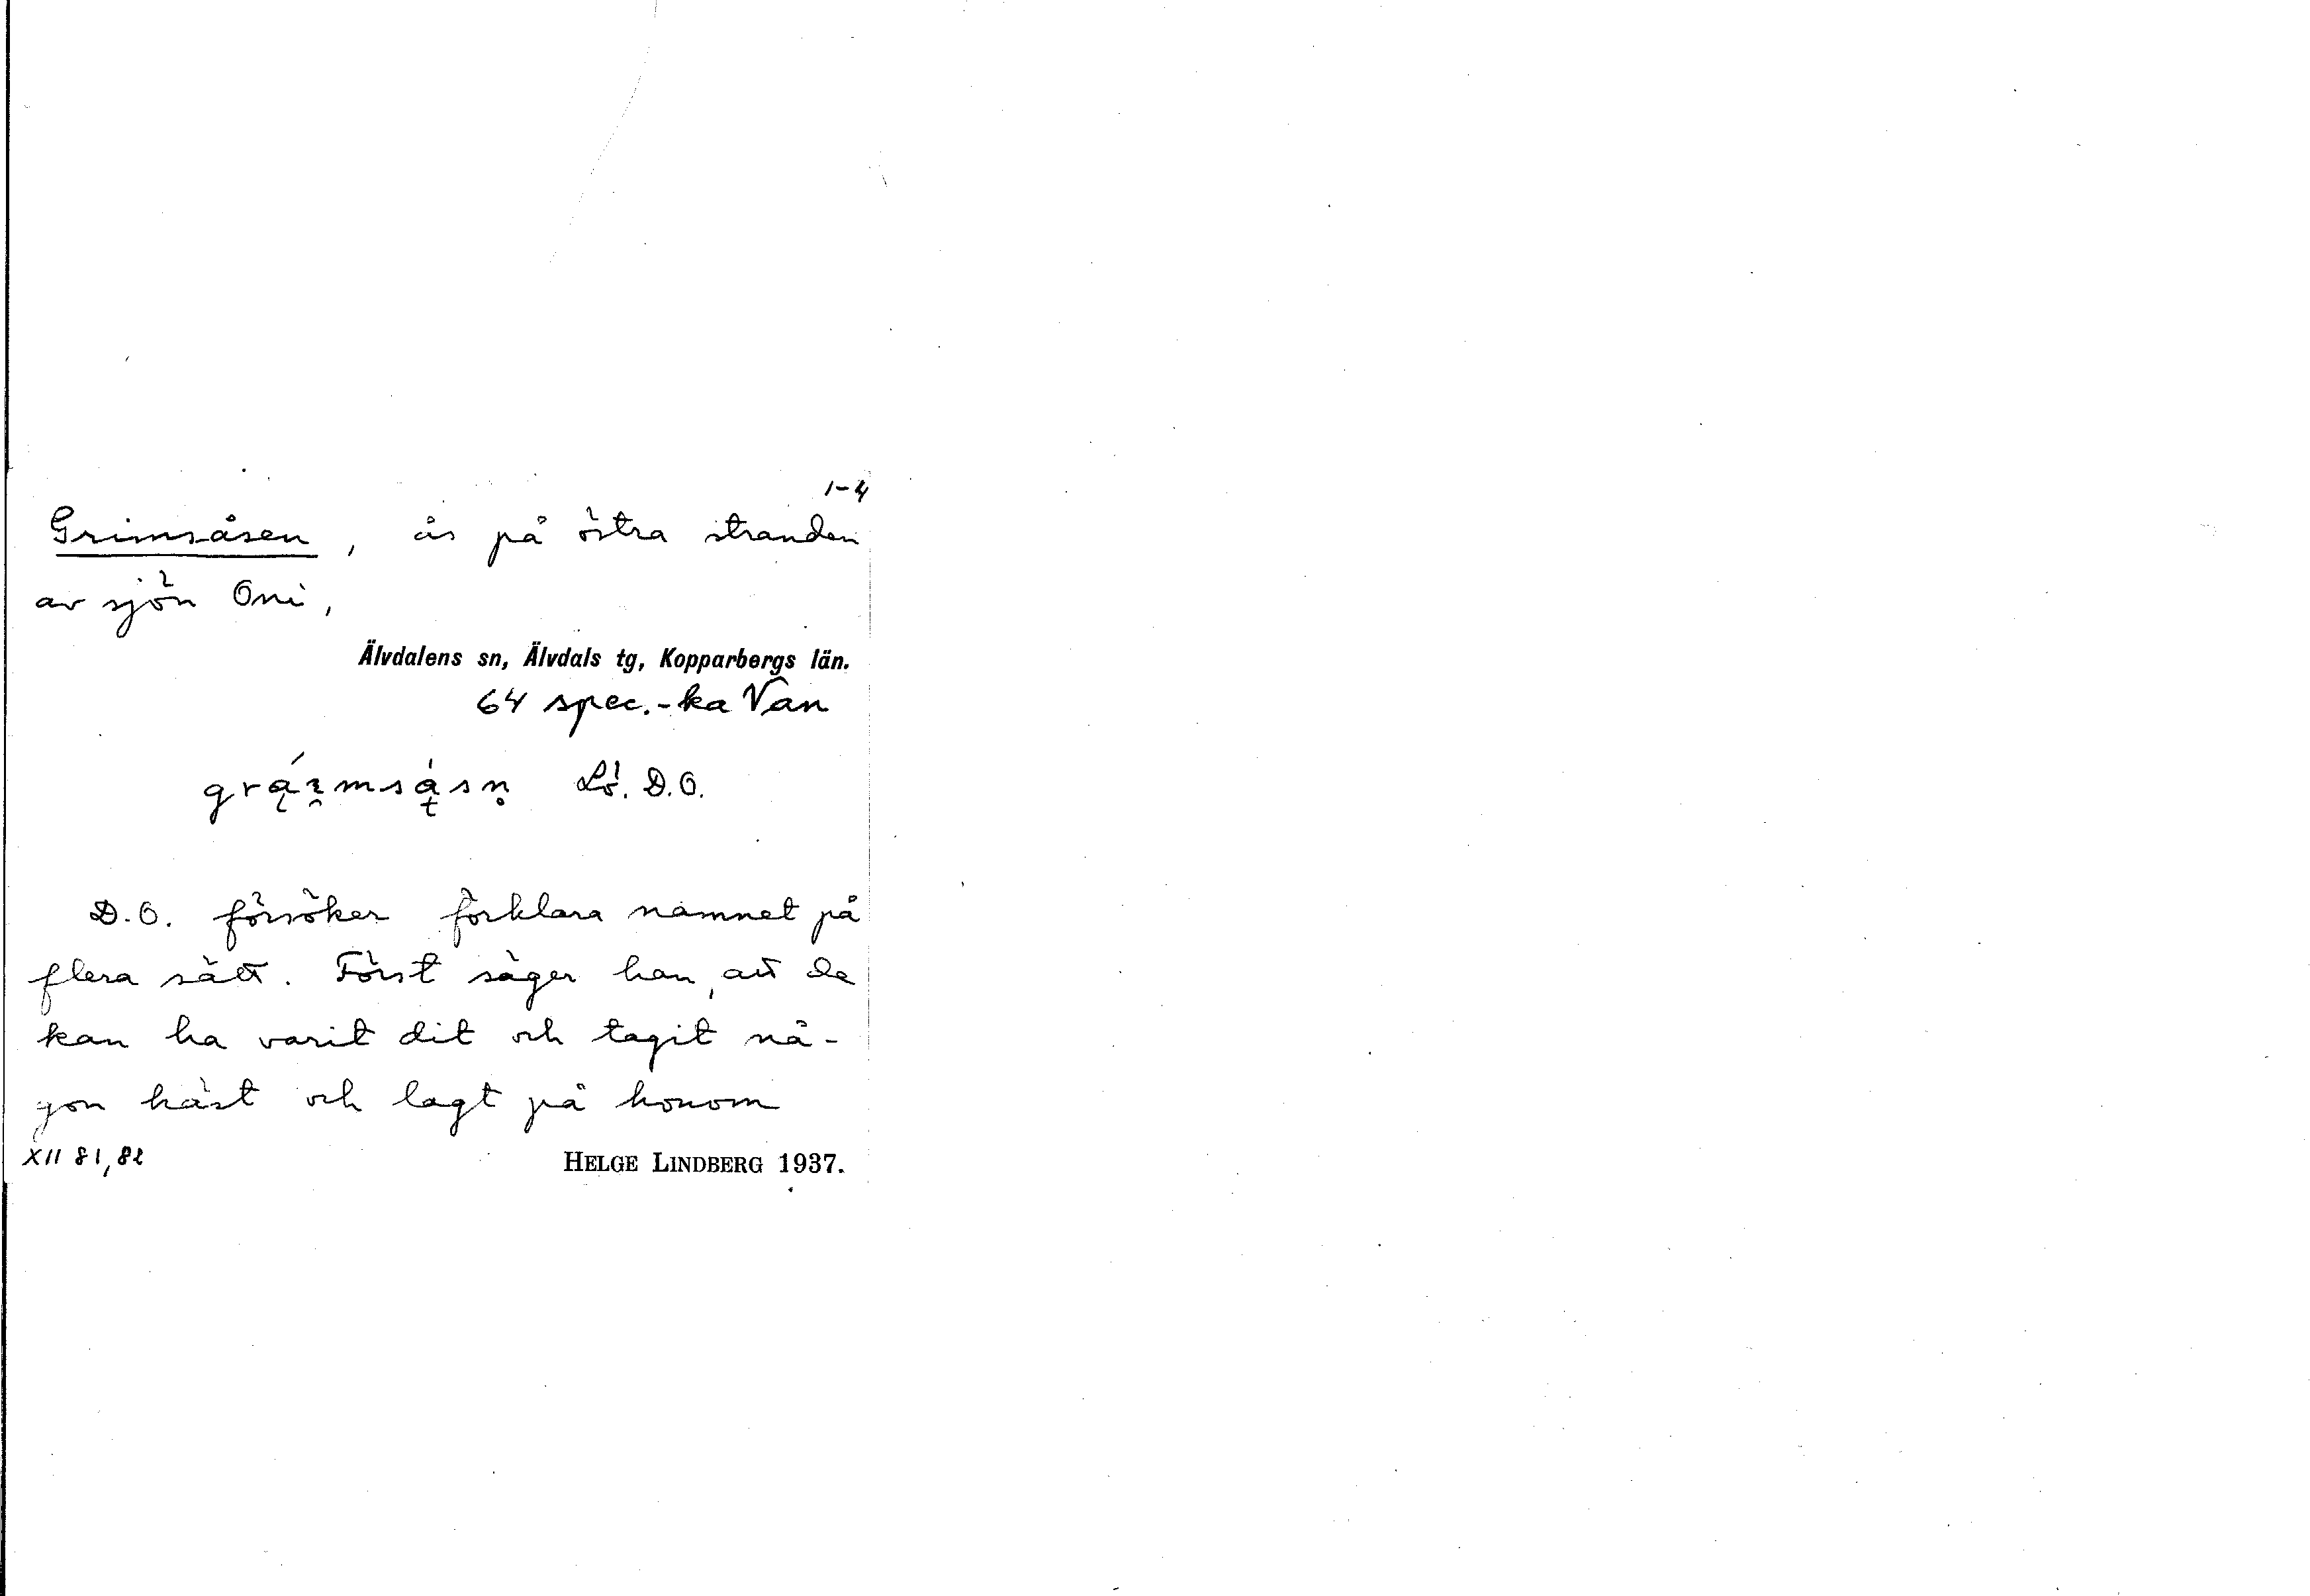 1-4
Grimsåsen, ås på östra stranden
av sjön Oni,
Älvdalens sn, Älvdals tg, Kopparbergs län.
64 spec.-ka Van
Lö. D.O.
D.O. försöker förklara namnet på
flera sätt. Först säger han, att de
kan ha varit dit och tagit nå-
gon häst och lagt på honom
XII 81,82
HELGE LINDBERG 1937.